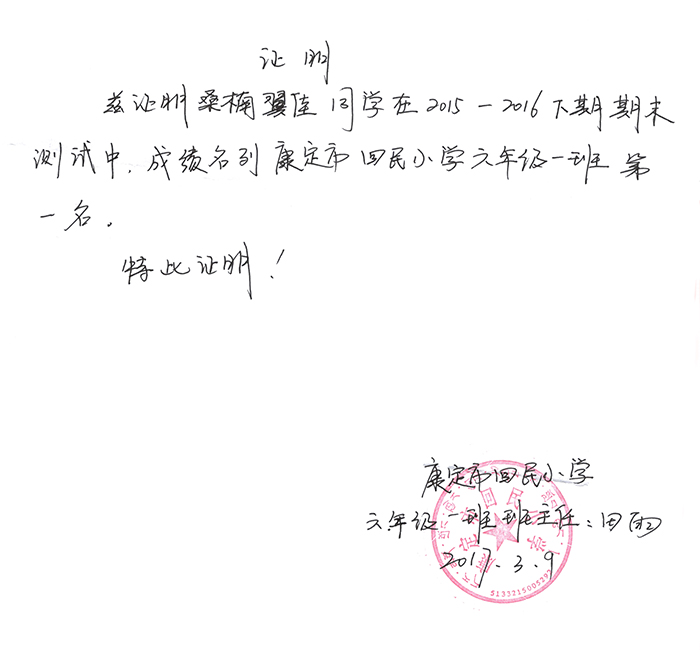 证明
兹证明桑楠翼佳同学在2015-2016下期期末
测试中,成绩名列康定市回民小学六年级一班第
一名.
特此证明!
康定市回民小学
六年级一班班主任:田雨
2017.3.9
康定市回民小学
5133215005292